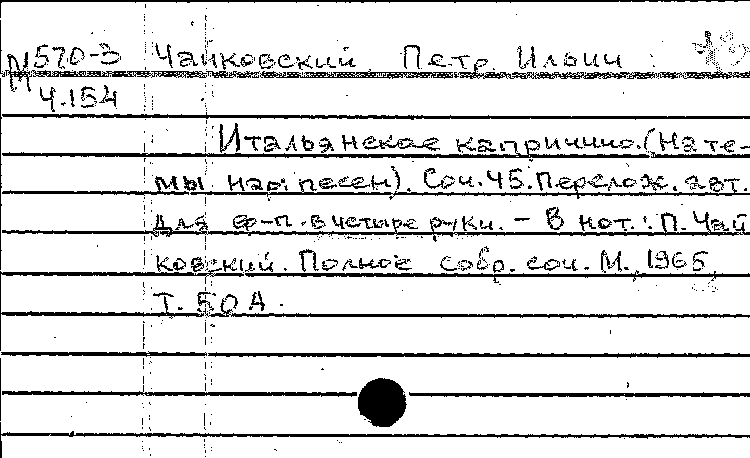 М570-3 Чайковский, Петр Ильич
Ч.154
Итальянское каприччио. (На те-
мы нар. песен). Соч. 45. Перелож. авт.
для ф-п. в четыре руки. - В нот.: П. Чай
ковский. Полное собр. соч. М., 1965,
Т. 50 А.